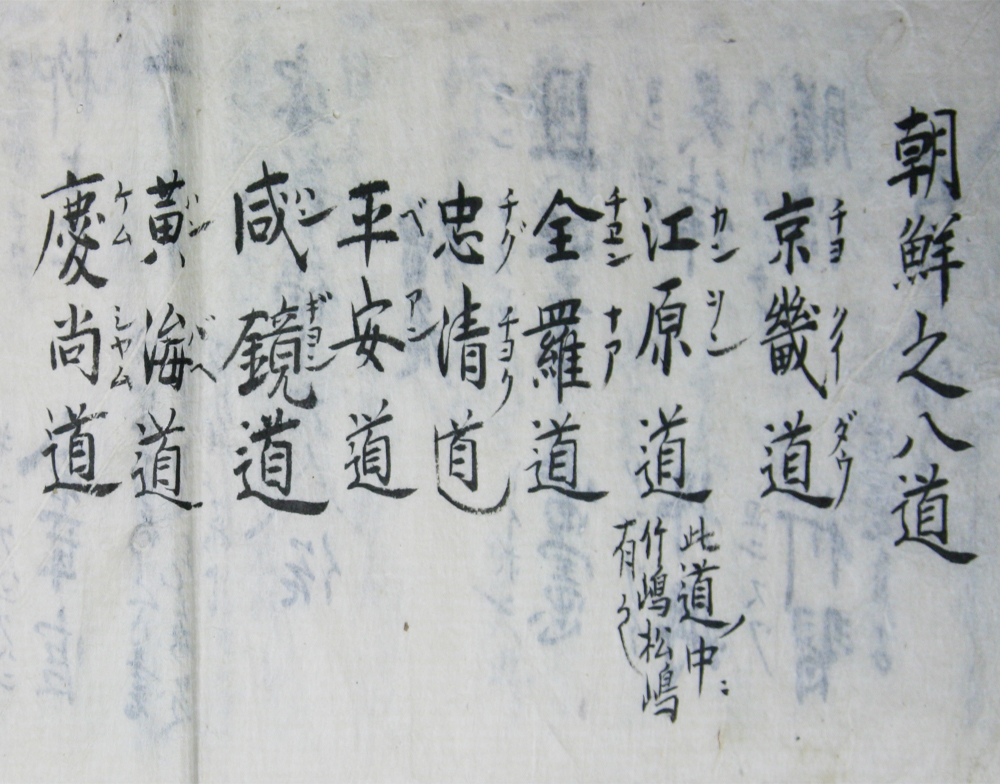 朝鮮之八道
京畿道
チヨ クイ ダウ
江原道
カン ヲン
此道ノ中ニ
竹嶋松嶋
有之
全羅道
チヱン ナア
忠清道
チグ チヨク
平安道
ベ アン
咸鏡道
ハン ギヨン
黃海道
ハン バヘ
慶尚道
ケム シヤム